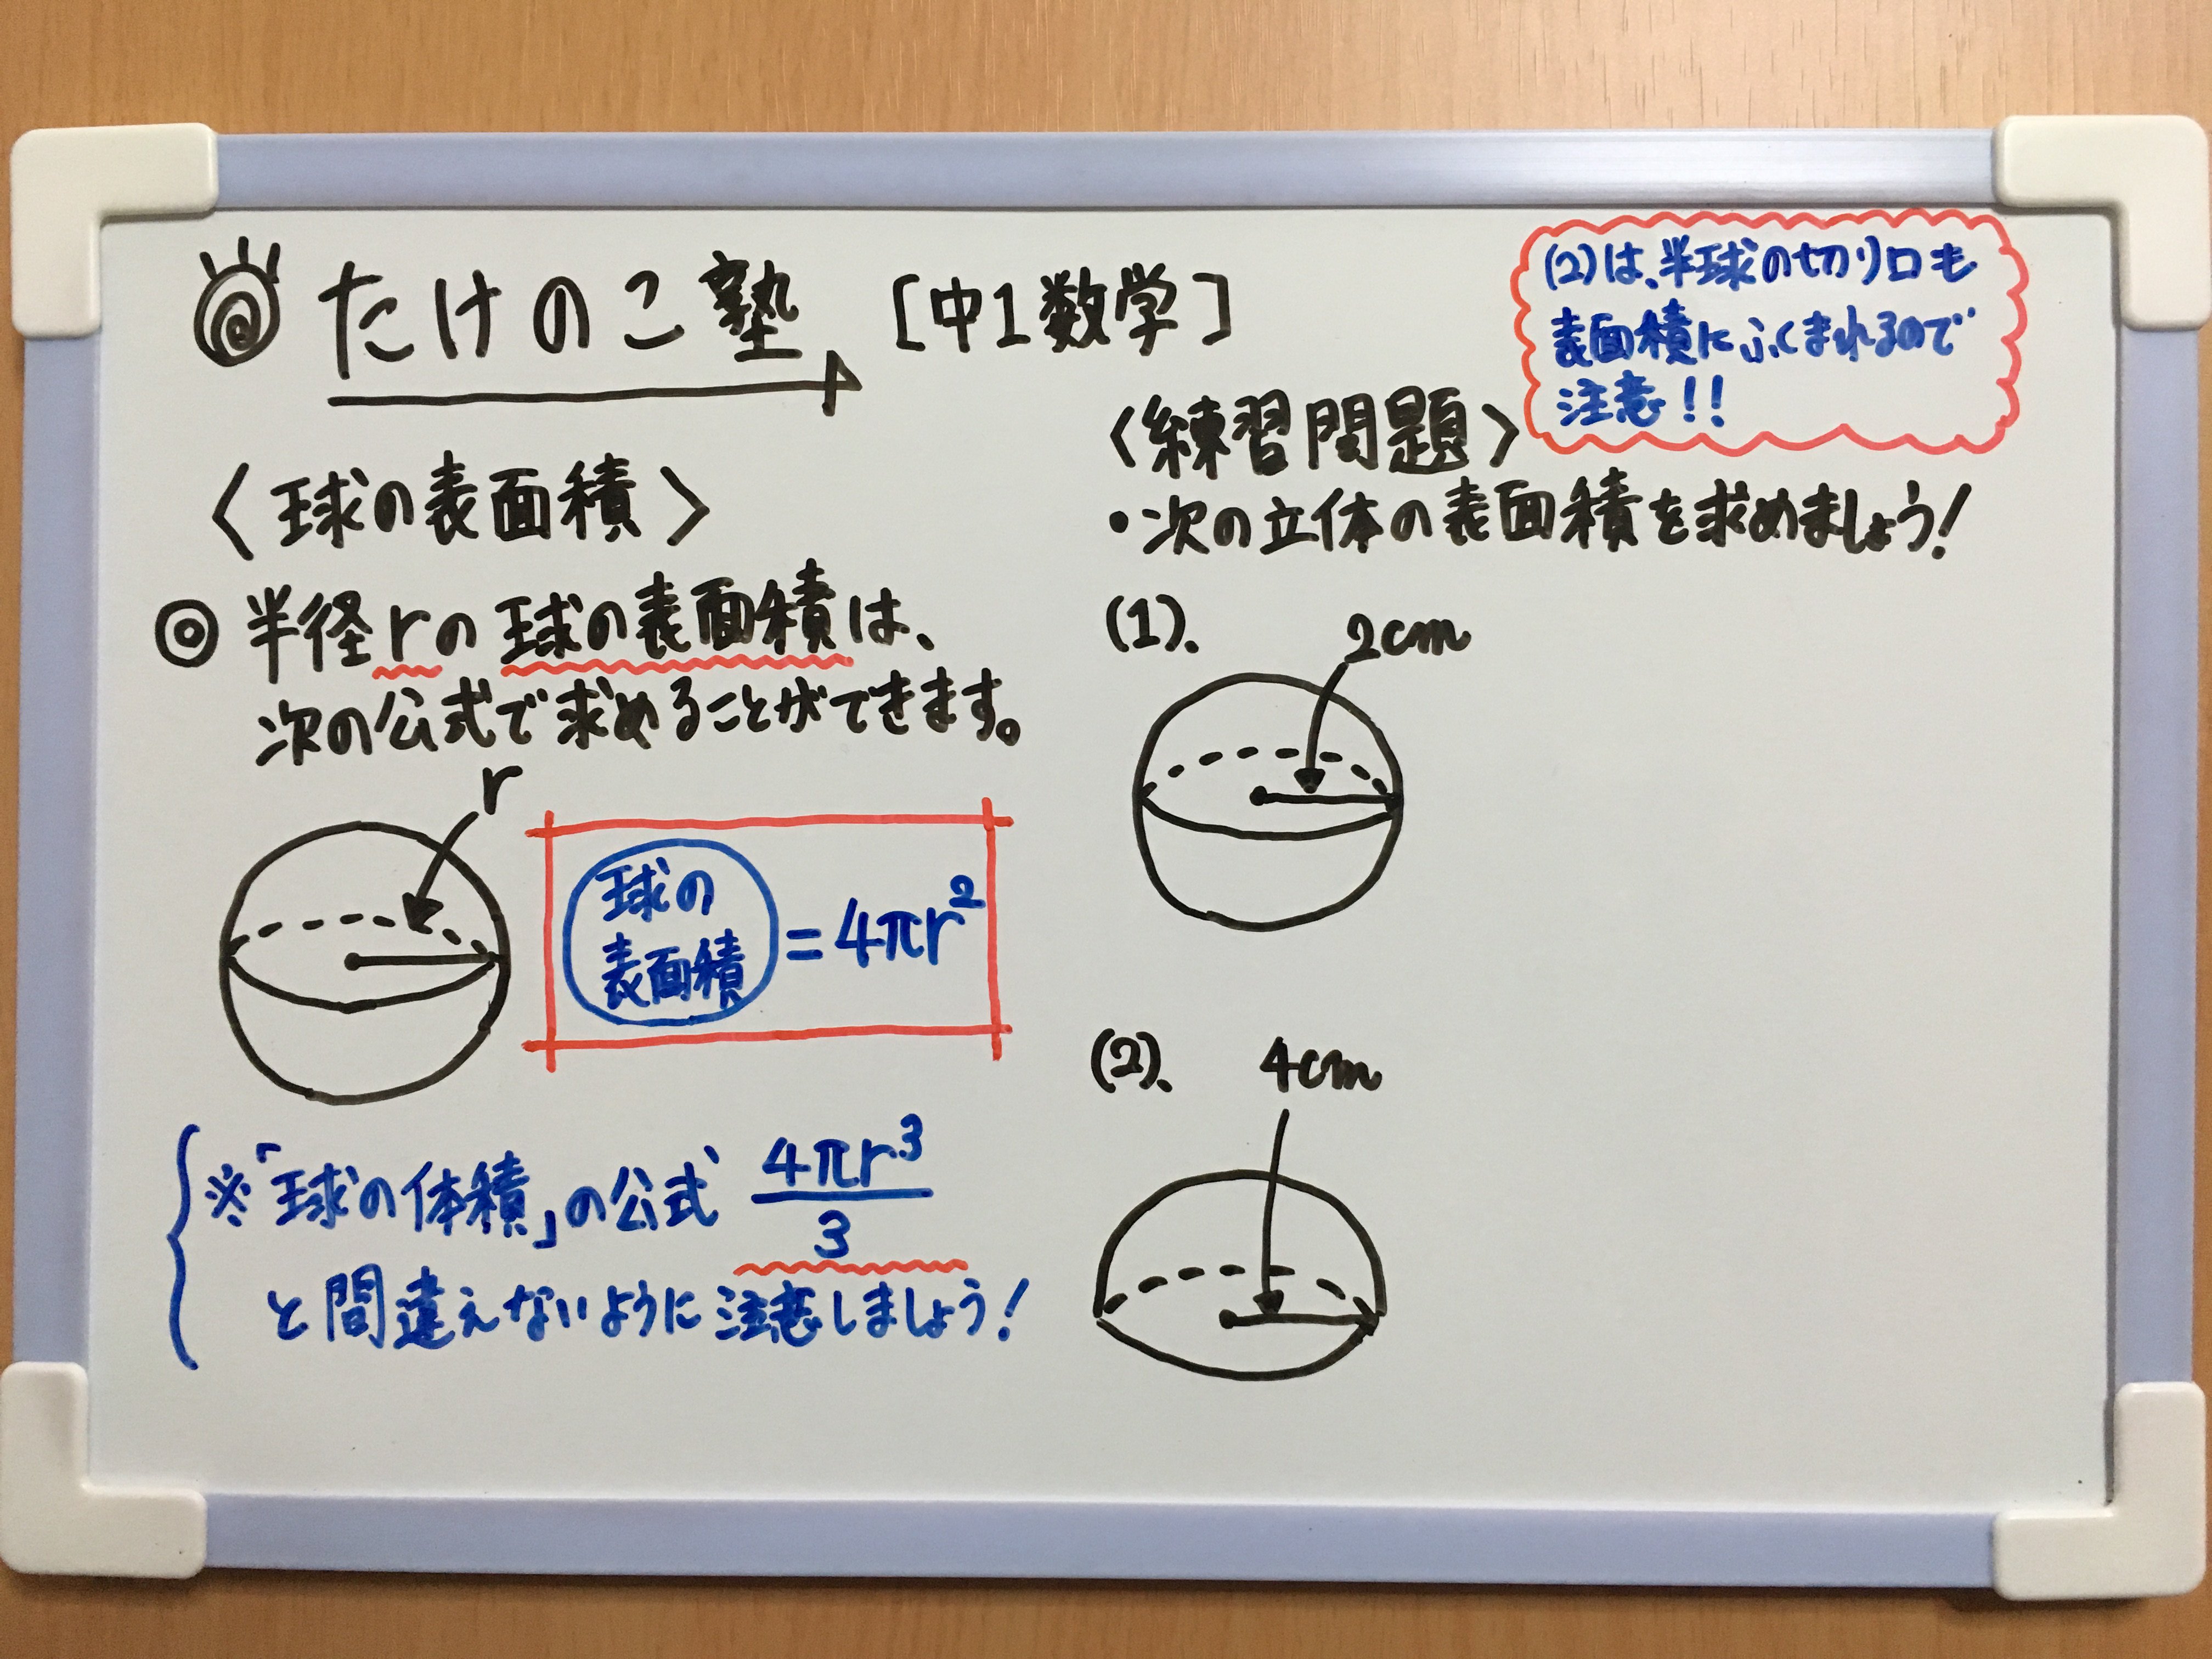 たけのこ塾 [中1数学]
〈球の表面積〉
◎半径rの球の表面積は、
次の公式で求めることができます。
r
球の
表面積
=4πr²
※「球の体積」の公式 4πr³/3
と間違えないように注意しましょう!
(2)は、半球の切り口も
表面積にふくまれるので
注意!!
〈練習問題〉
・次の立体の表面積を求めましょう!
(1).
2cm
(2).
4cm